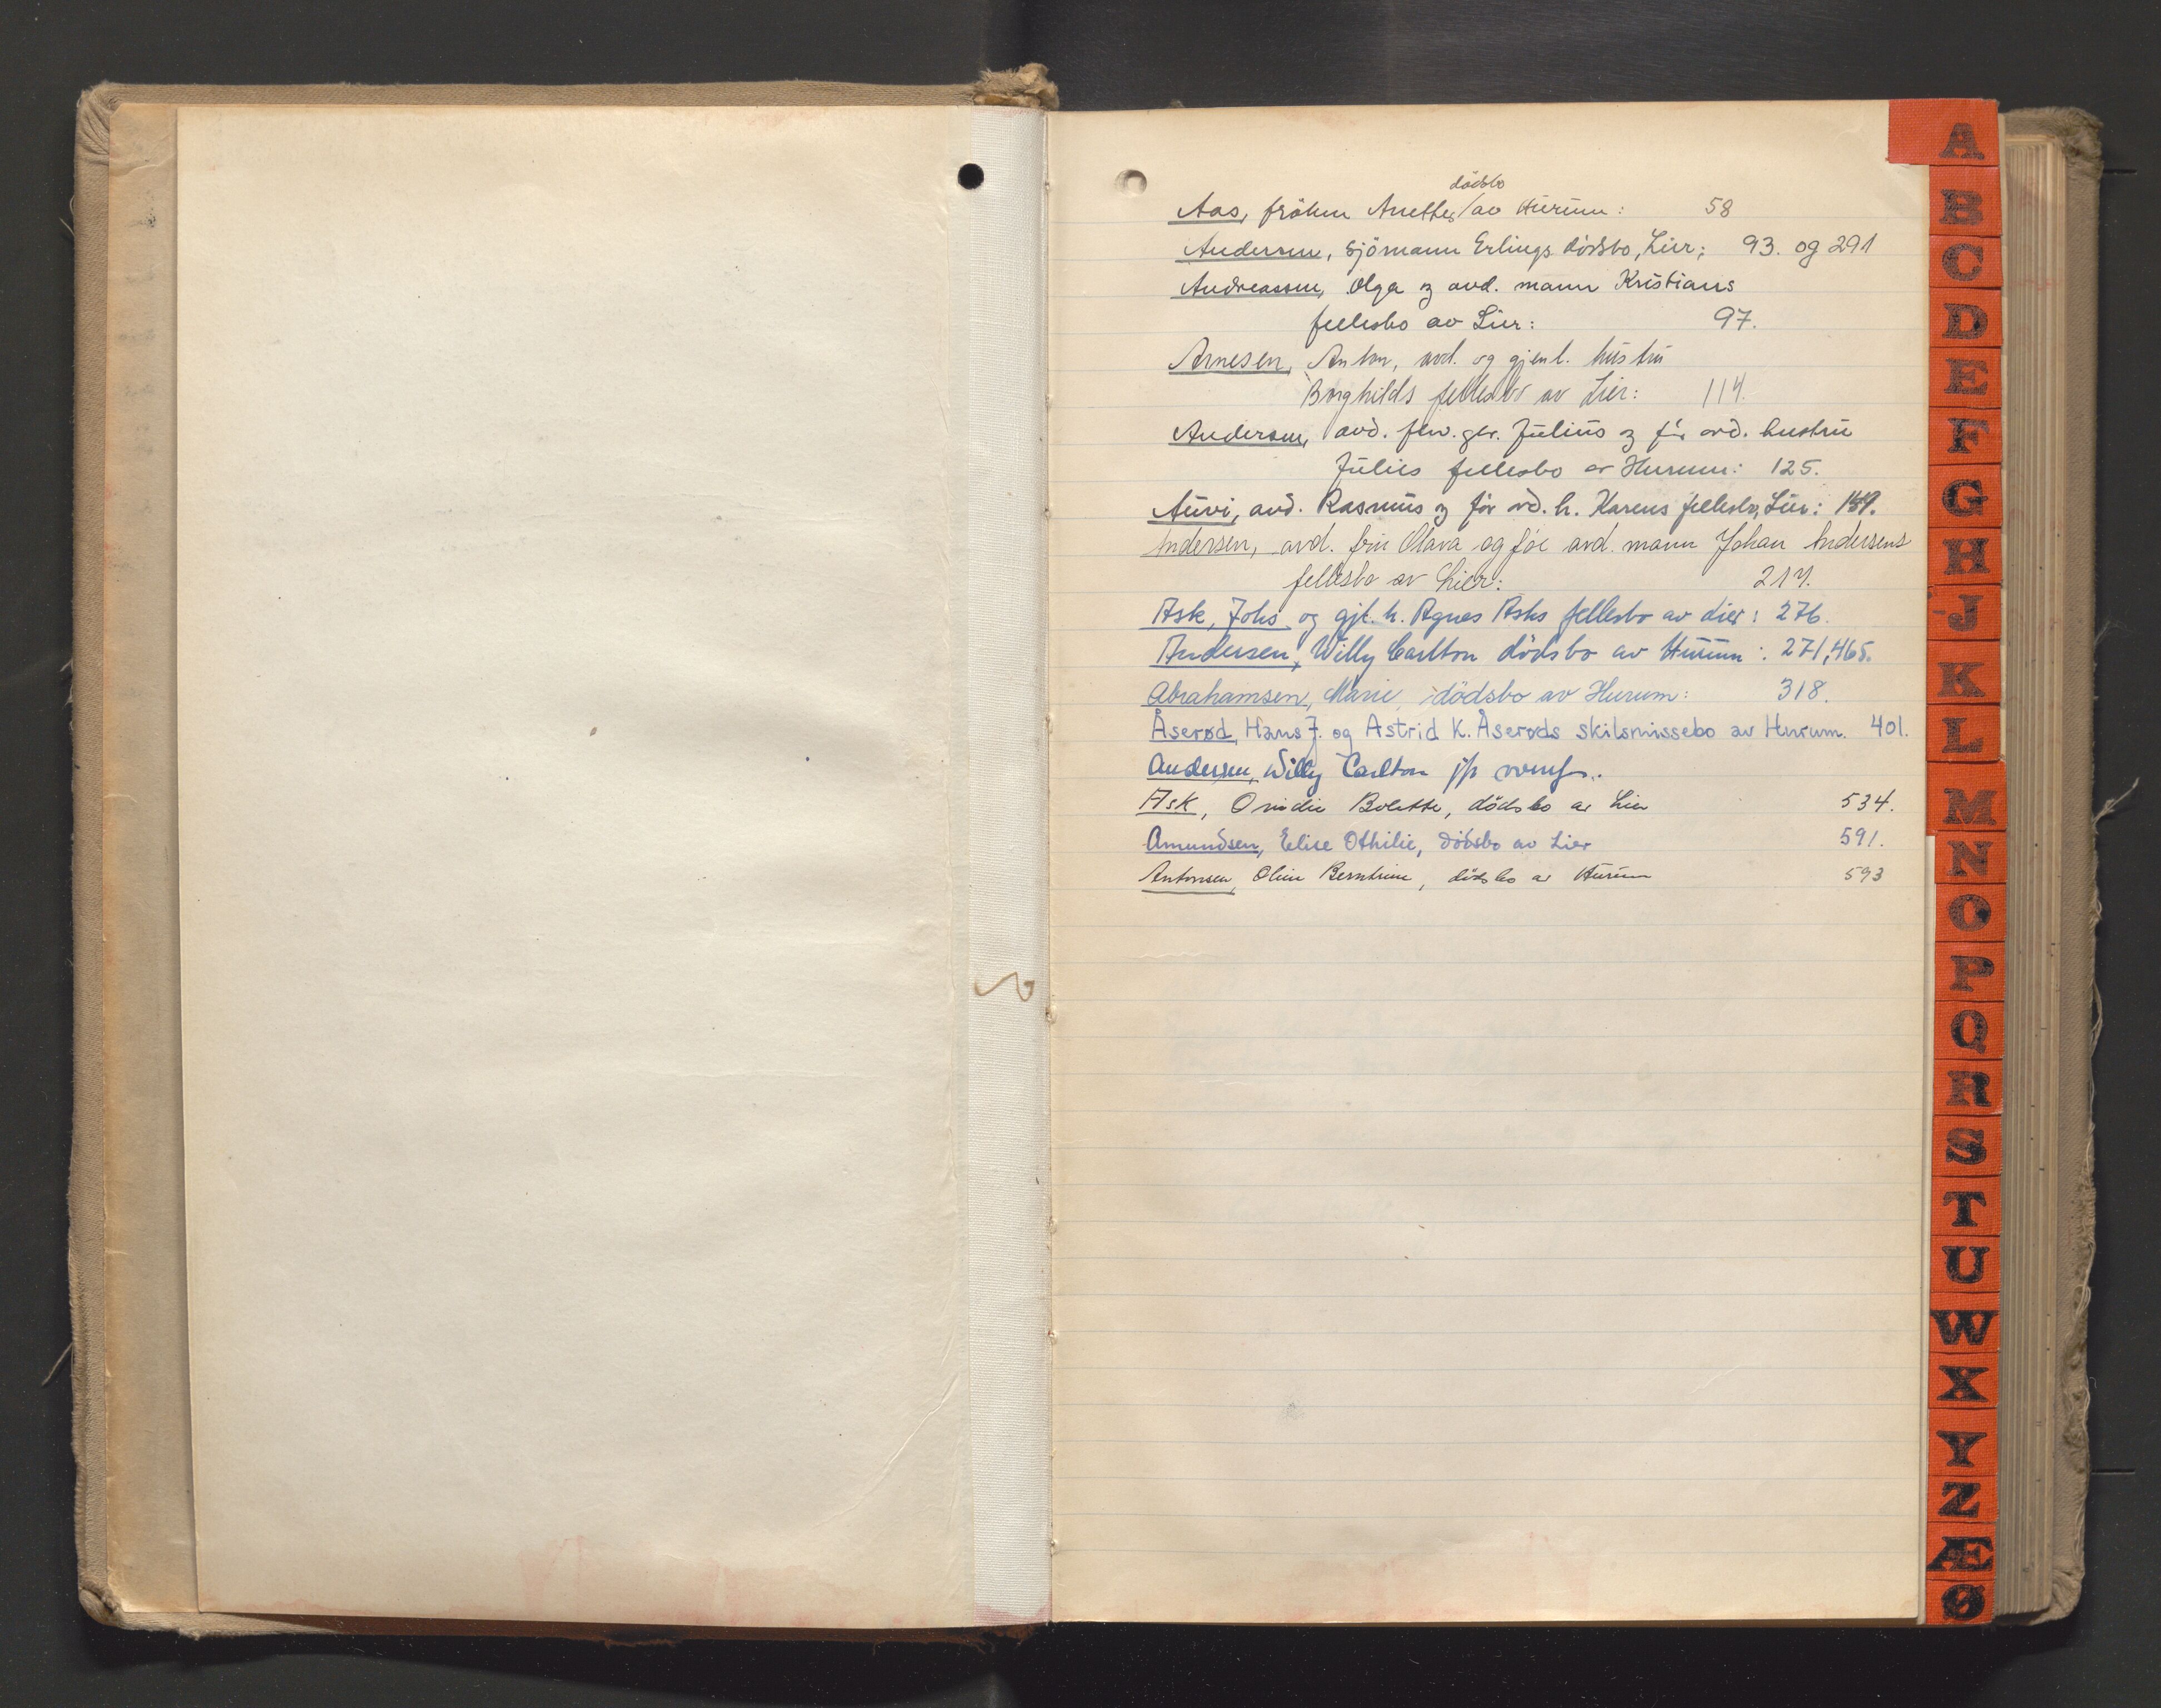 Aas, fröken Anettes dödsbo av Hurum: 58
Andersen, Sjömann Erlings dödsbo, Lier; 93. og 291
Andreassen, Olga og avd. mann Kristians
fellesbo av Lier: 97.
Arnesen, Anton, avd. og gjenl. hustru
Borghilds fellesbo av Lier: 114.
Andersen, avd. Julius og før avd. hustru
Julies fellesbo av Hurum: 125.
Auvi, avd. Rasmus og før avd. h. Karens fellesbo, Lier:
Andersen, avd. fru Olava og før avd. mann Johan Andersens
fellesbo av Lier: 214.
Ask, Johs og gjl. h. Agnes Asks fellesbo av Lier: 276.
Andersen, Willy Carlton dödsbo av Hurum: 271, 465.
Abrahamsen, Marie, dödsbo av Hurum: 318.
Åserød, Hans J. og Astrid K. Åserøds skilsmissebo av Hurum. 401.
Andersen, Willy Carlton
Ask, Bolette, dödsbo av Lier 534.
Amundsen, Elise Othilie, dödsbo av Lier 591.
Antonsen, Oline Berntine, dödsbo av Hurum 593
A
B
C
D
E
F
G
H
J
K
L
M
N
O
P
Q
R
S
T
U
W
X
Y
Z
Æ
Ø